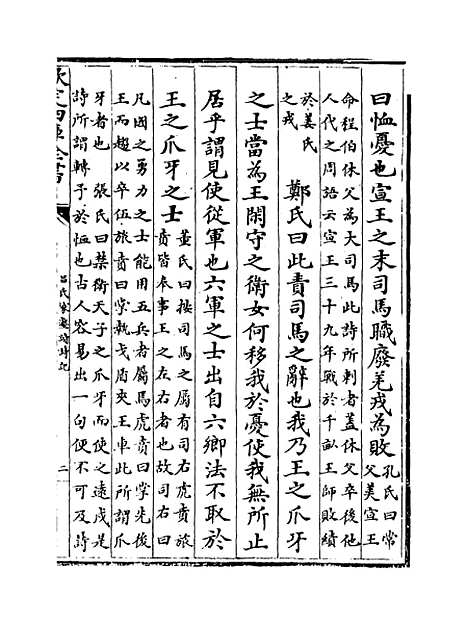 曰恤憂也宣王之末司馬職廢羌戎為敗孔氏曰常
父美宣王
命程伯休父為大司馬此詩所刺者蓋休父卒後他
人代之周語云宣王三十九年戰於千畝王師敗績
於姜氏
之戎　鄭氏曰此責司馬之辭也我乃王之爪牙
之士當為王閑守之衛女何移我於憂使我無所止
居乎謂見使從軍也六軍之士出自六卿法不取於
王之爪牙之士董氏曰按司馬之屬有司右虎賁旅
賁皆奉事王之左右者也故司右曰
凡國之勇力之士能用五兵者屬焉虎賁曰掌先後
王而趨以卒伍旅賁曰掌執戈盾夾王車此所謂爪
牙者也　張氏曰禁衛天子之爪牙而使之遠戍是
詩所謂轉予於恤也古人容易出一句便不可及詩
欽定四庫全書
呂氏家塾讀詩記
二